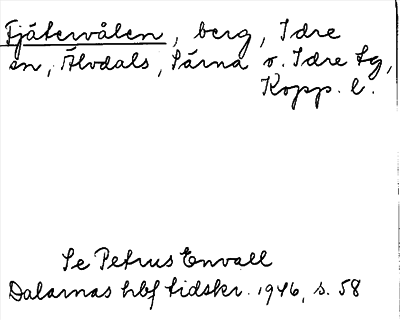 Fjätervålen, berg, Idre
sn, Älvdals, Särna o. Idre tg,
Kopp. l.
Se Petrus Envall
Dalarnas hbf tidskr. 1946, s. 58